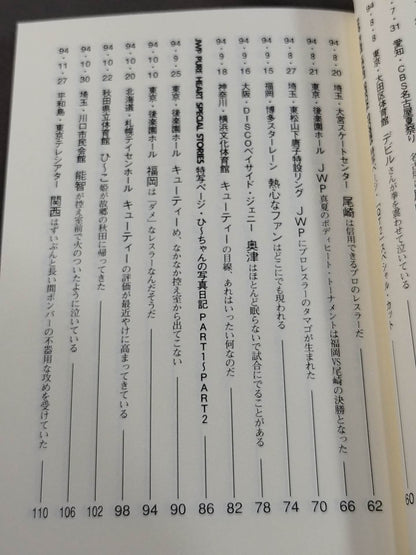 7・31 愛知・CBS名古屋夏祭り
デビルさんが拳を震わせて泣いている
60
94・8・9 東京・大田区体育館
尾崎は信用できるプロのレスラーだ 62
94・8・20 埼玉・大宮スケートセンター JWP真夏のボディヒート・トーナメントは福岡VS.尾崎の決勝となった 66
94・8・21 東京・後楽園ホール JWPにプロレスラーのタマゴが生まれた 70
94・8・27 埼玉・東松山下唐子特設リング 熱心なファンはどこにでも現われる 74
94・9・15 福岡・博多スターレーン 奥津はほとんど眠らないで試合にでることがある 78
94・9・16 大阪・DISCOベイサイド・ジェニー キューティーの目線、あれはいったい何なのだ 82
94・9・18 神奈川・横浜文化体育館
JWP PURE HEART SPECIAL STORIES 特写ページ・ひ〜ちゃんの写真日記 PART1〜PART2 86
94・9・25 東京・後楽園ホール キューティーめ、なかなか控え室から出てこない 90
94・10・10 東京・後楽園ホール 福岡は「ダメ」なレスラーなんだそうだ 94
94・10・20 北海道・札幌テイセンホール キューティーの評価が最近やけに高まってきている 98
94・10・22 秋田県立体育館 ひ〜こ姫が故郷の秋田に帰ってきた 102
94・10・30 埼玉・川口市民会館 能智が控え室前で火のついたように泣いている 106
94・11・27 平和島・東京テレシアター 関西はずいぶんと長い間ボンバーの不器用な攻めを受けていた 110